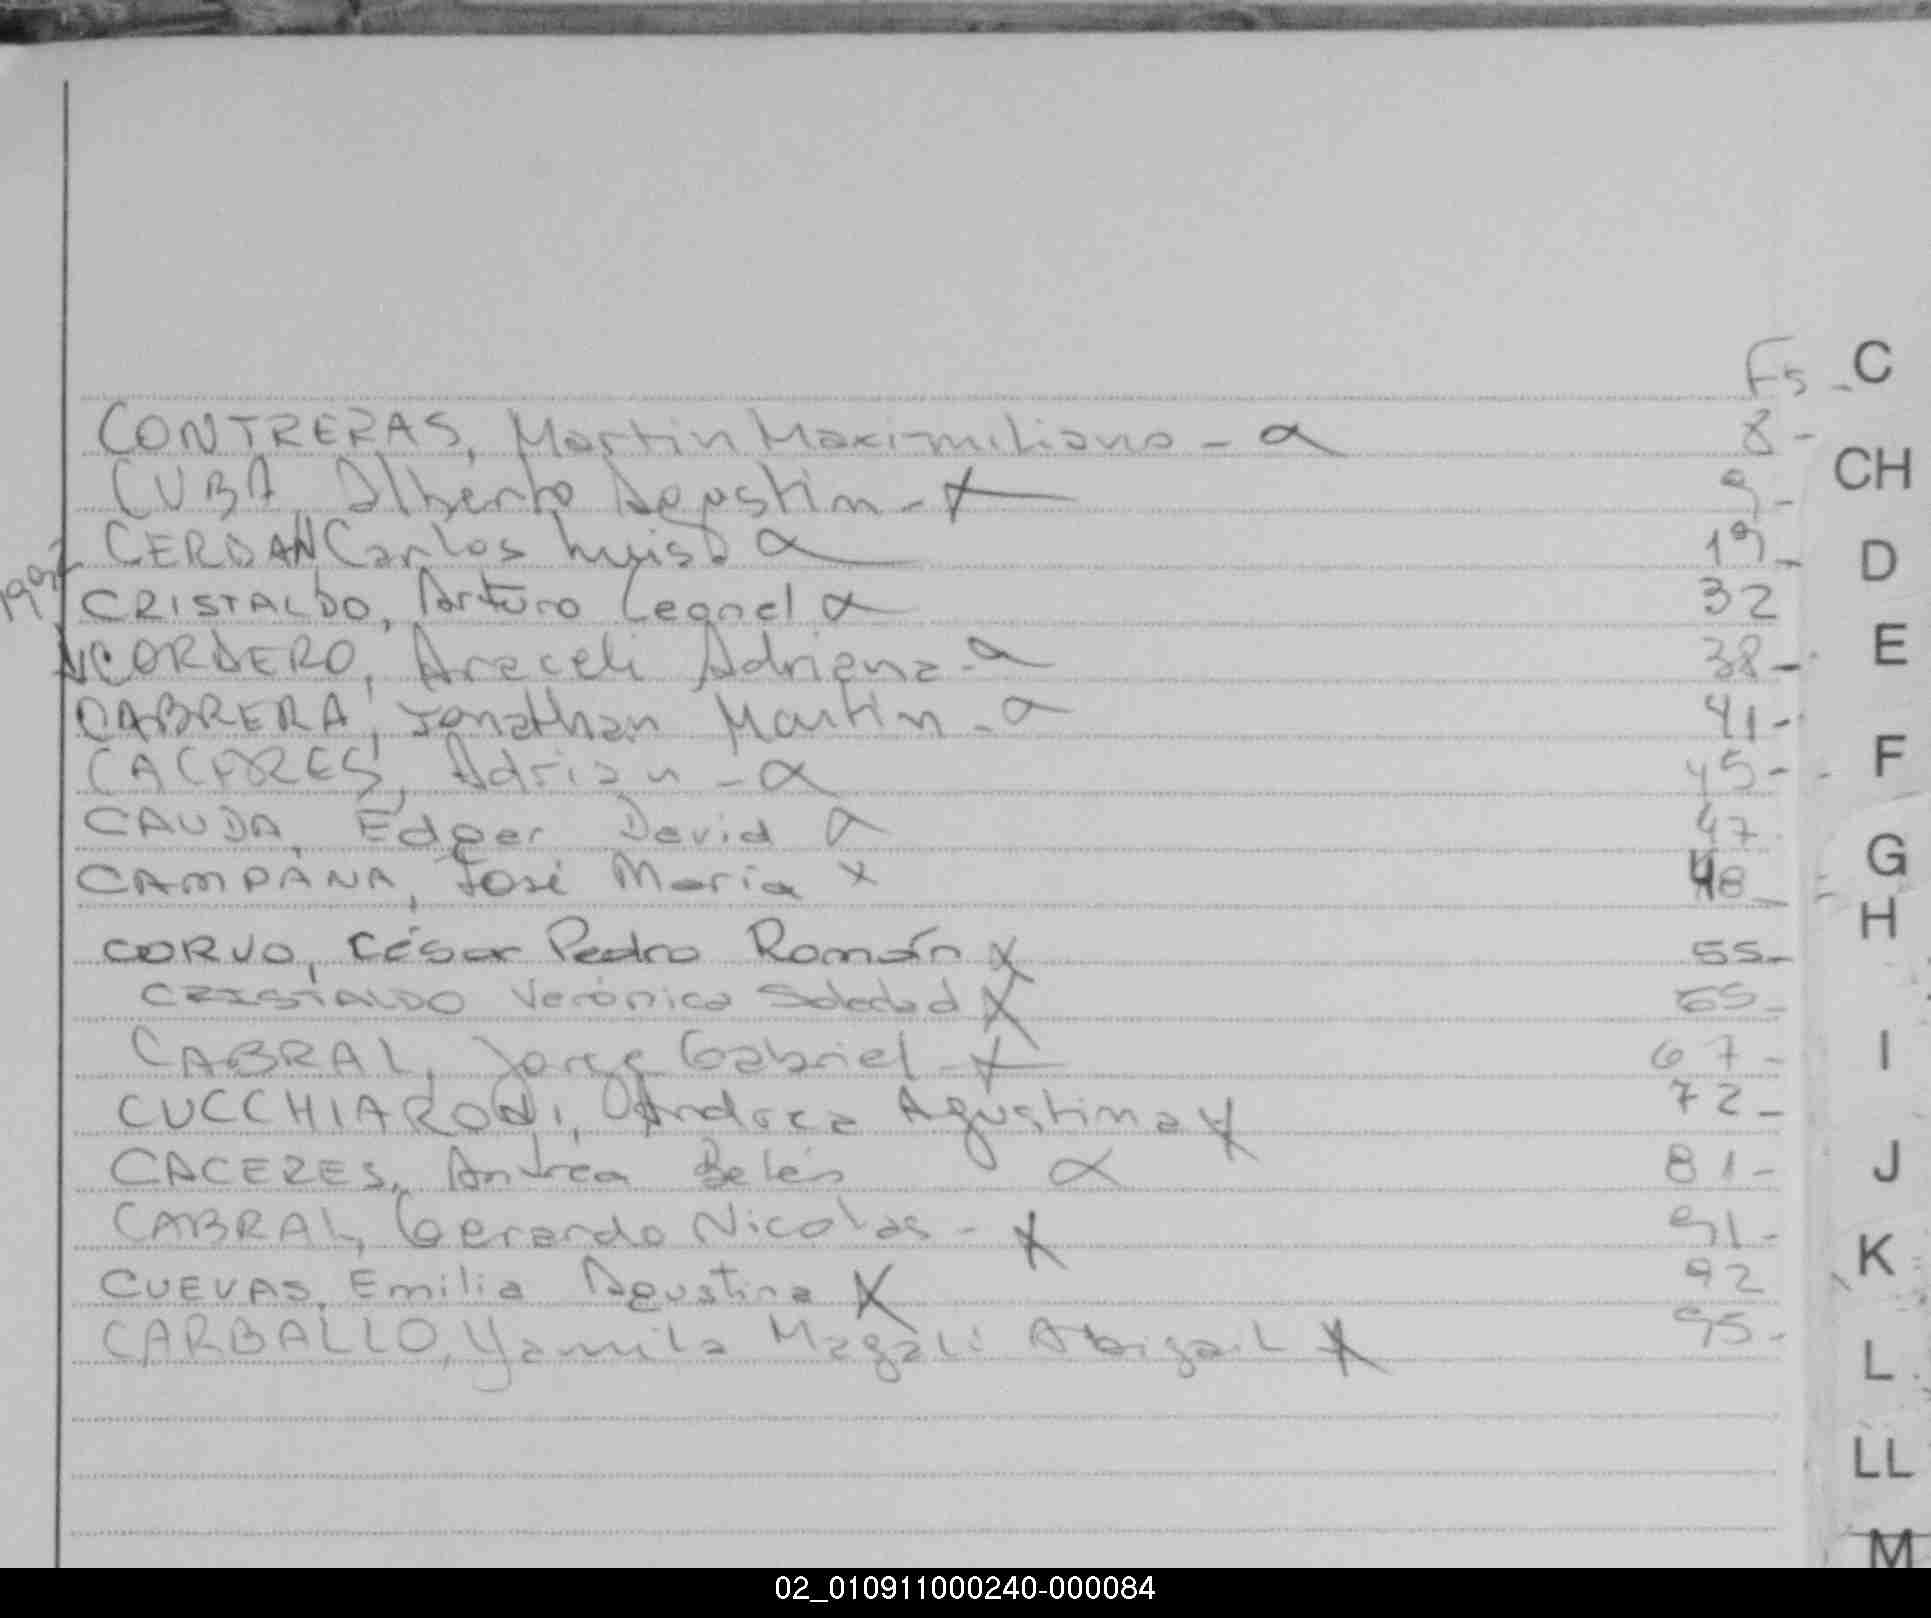 Fs - C
CONTRERAS, Martin Maximiliano - 8 -
CH
CUBA, Alberto Agustin - 9 -
CERDAN Carlos Luis 19 -
D
1992
CRISTALDO, Arturo Leonel 32
CORDERO, Araceli Adriana - 38 -
E
CABRERA, Jonathan Martin - 41 -
CACERES, Adrian - 45 -
F
CAUDA, Edger David 47
CAMPANA, José Maria x 48 -
G
H
CORVO, César Pedro Román x 55 -
CRISTALDO Verónica Soledad x 65 -
CABRAL, Jorge Gabriel - 67 -
I
CUCCHIARONI, Andrea Agustina x 72 -
CACERES, Andrea Belén 81 -
J
CABRAL, Gerardo Nicolas - x 91 -
K
CUEVAS, Emilia Agustina x 92
CARBALLO, Yamila Magali Abigail x 95 -
L
LL
M
02_010911000240-000084